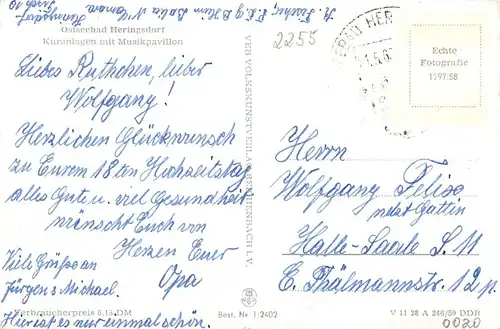 Ostseebad Heringsdorf
Kuranlagen mit Musikpavillon
Liebes Ruthchen, lieber
Wolfgang!
Herzlichen Glückwunsch
zu Eurem 18ten Hochzeitstag
alles Gute u. viel Gesundheit
wünscht Euch von
Herzen Euer
Opa
Viele Grüße an
Jürgen & Michael.
Hier ist es nur einmal schön.
Verbraucherpreis 0,15 DM
Best. Nr. 1/2402
VEB VOLKSKUNSTVERLAG REICHENBACH I. V.
2255
Echte
Fotografie
1797/58
Herrn
Wolfgang Felix
nebst Gattin
Halle-Saale S. 11
E. Thälmannstr. 12 p.
V 11 28 A 246/59 DDR
0020